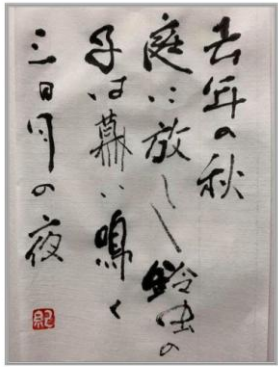 去年の秋
庭に放しし鈴虫の
子は に鳴く
三日月の夜
紀